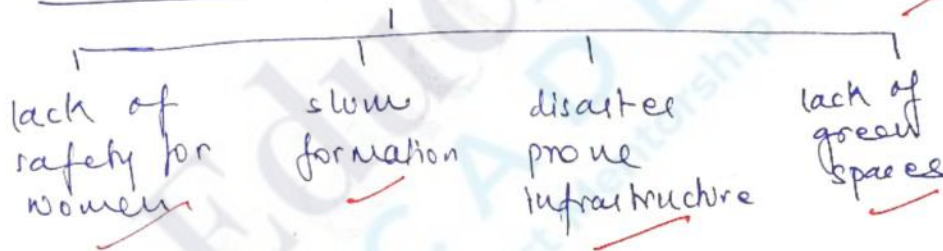 lack of
safety for
women
slum
formation
disaster
prone
infrastructure
lack of
green
spaces